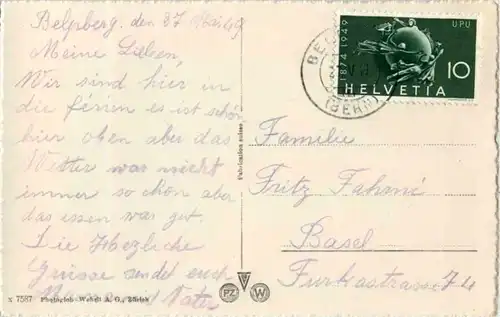 Belpberg. den 37 Mai 49
Meine Lieben,
Wir sind hier in
die ferien es ist schön
hier oben aber das
Wetter war nicht
immer so schön aber
das essen war gut.
Die Herzliche
Grüsse sendet euch
Mama und Vater
x 7587 Photoglob-Wehrli A. G., Zürich
Fabrication suisse
PZ W
1874-1949
UPU
10
HELVETIA
BEL
(BERN)
Familie
Fritz
Basel
Furkastrasse 74